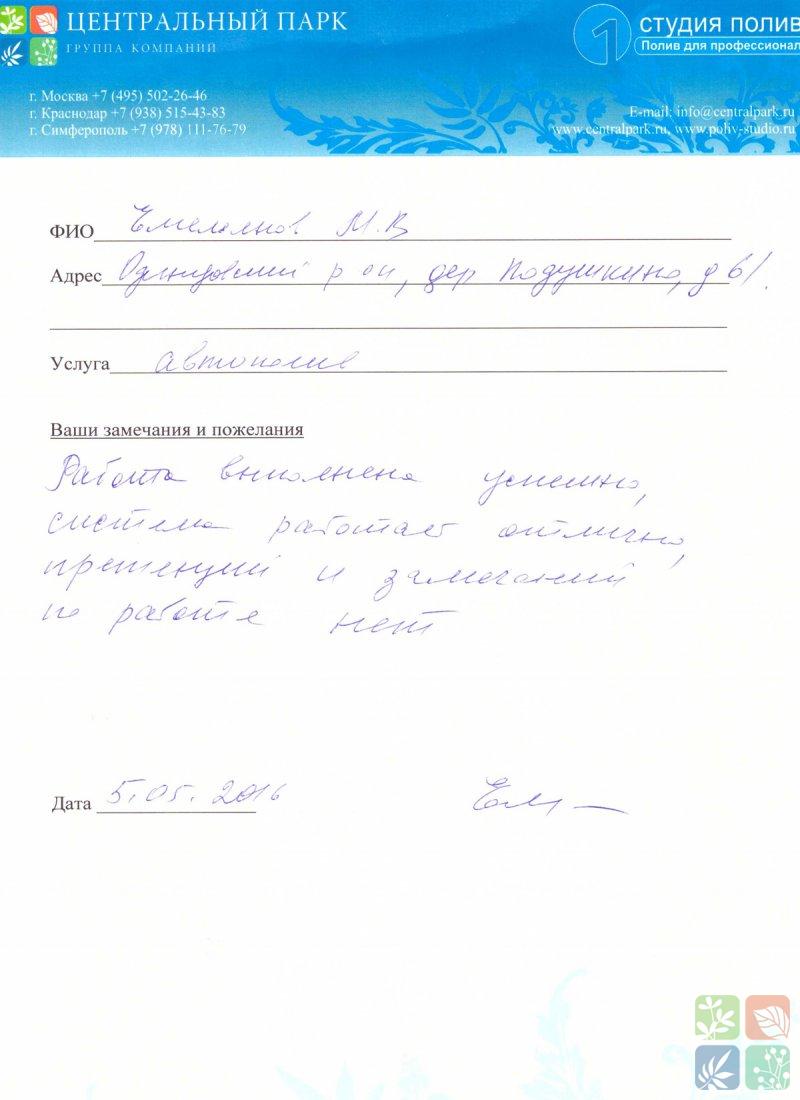 ЦЕНТРАЛЬНЫЙ ПАРК
ГРУППА КОМПАНИЙ
1 СТУДИЯ ПОЛИВ
Полив для профессионал
г. Москва +7 (495) 502-26-46
г. Краснодар +7 (938) 515-43-83
г. Симферополь +7 (978) 111-76-79
E-mail: info@centralpark.ru
www.centralpark.ru, www.poliv-studio.ru
ФИО Емельянов М.В
Адрес Одинцовский р он, дер Подушкино, д 61.
Услуга автополив
Ваши замечания и пожелания
Работа выполнена успешно,
система работает отлично,
претензий и замечаний
по работе нет
Дата 5.05.2016